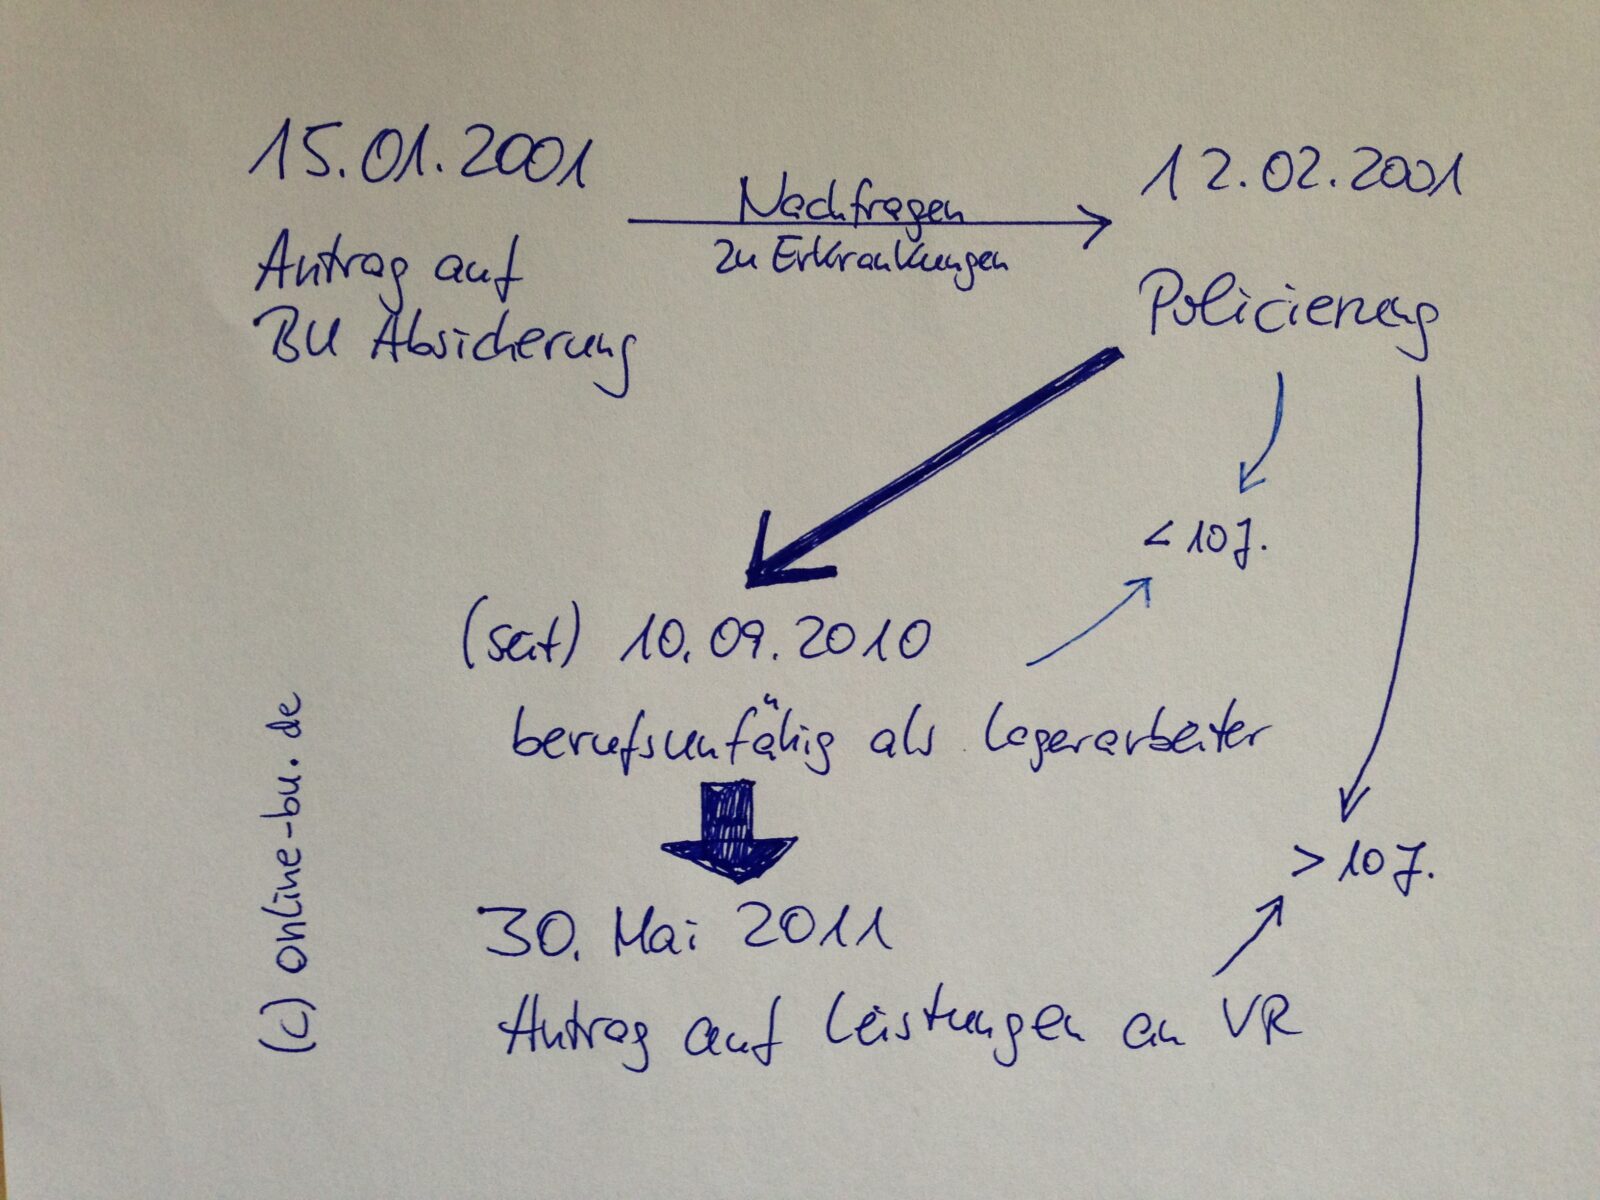 15.01.2001
Antrag auf
BU Absicherung
Nachfragen
zu Erkrankungen
12.02.2001
Policierung
< 10 J.
(seit) 10.09.2010
berufsunfähig als Lagerarbeiter
> 10 J.
30. Mai 2011
Antrag auf Leistungen an VR
(c) online-bu.de